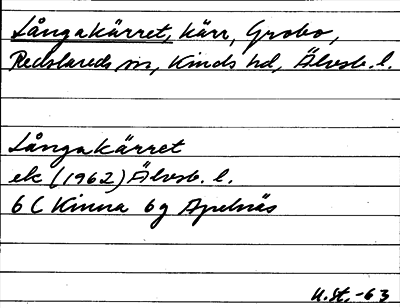 Långakärret, kärr, Grobo,
Redslareds sn, Kinds hd, Älvsb. l.
Långakärret
ek (1962) Älvsb. l.
6 C Kinna 6g Apelnäs
U.St. -63